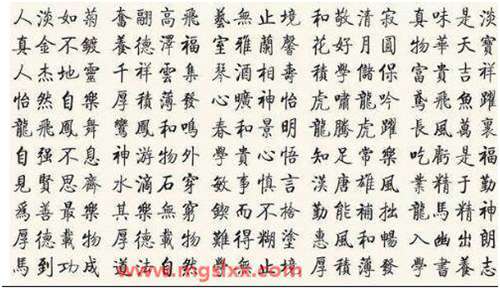 人淡如菊 奮翮高飛 藝無止境 和敬清寂 真味是淡
真金不鍍 養德澤福 室雅蘭馨 花好月圓 物華天寶
人杰地靈 千祥雲集 琴酒相壽 積學儲保 富貴吉祥
怡然自樂 厚積薄發 心曠神怡 虎嘯龍吟 鳶飛魚躍
龍飛鳳舞 鸞鳳和鳴 春和景明 龍騰虎躍 長風萬裏
自强不息 神游物外 學貴心悟 知足常樂 吃虧是福
見賢思齊 水滴石穿 敏事慎言 漢唐雄風 業精于勤
爲善最樂 其樂無窮 鍥而不捨 勤能補拙 龍馬精神
厚德載物 厚德載物 難得糊塗 惠風和暢 入幽出朗
馬到功成 道法自然 學無止境 厚積薄發 學書志
www.mgslxx.com